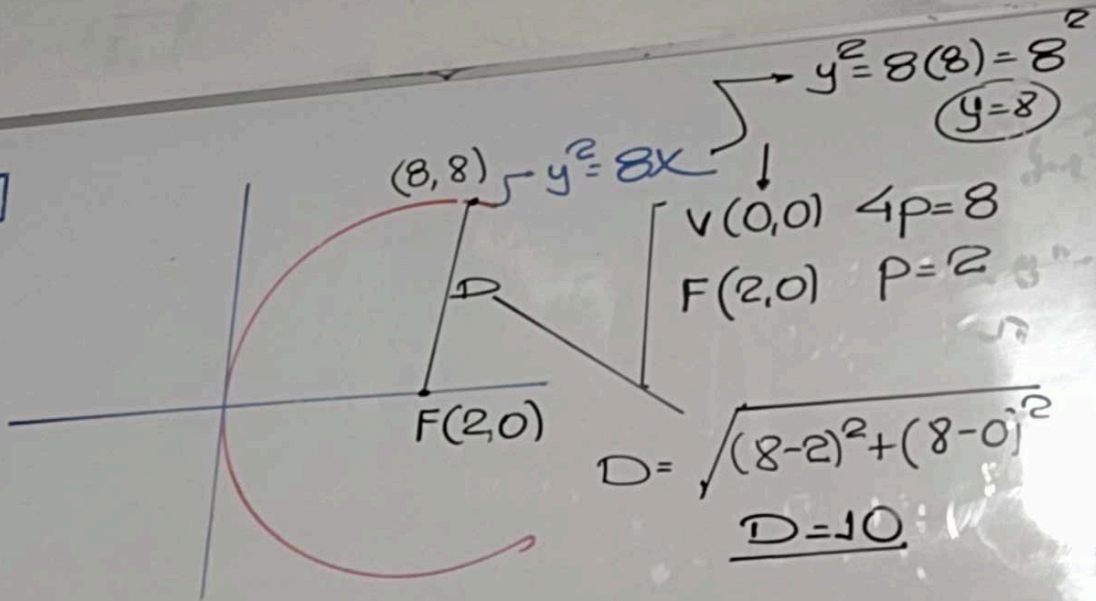 y²=8(8)=8²
y=8
(8,8) y²=8x
V(0,0) 4p=8
F(2,0) p=2
D
F(2,0)
D=√(8-2)²+(8-0)²
D=10